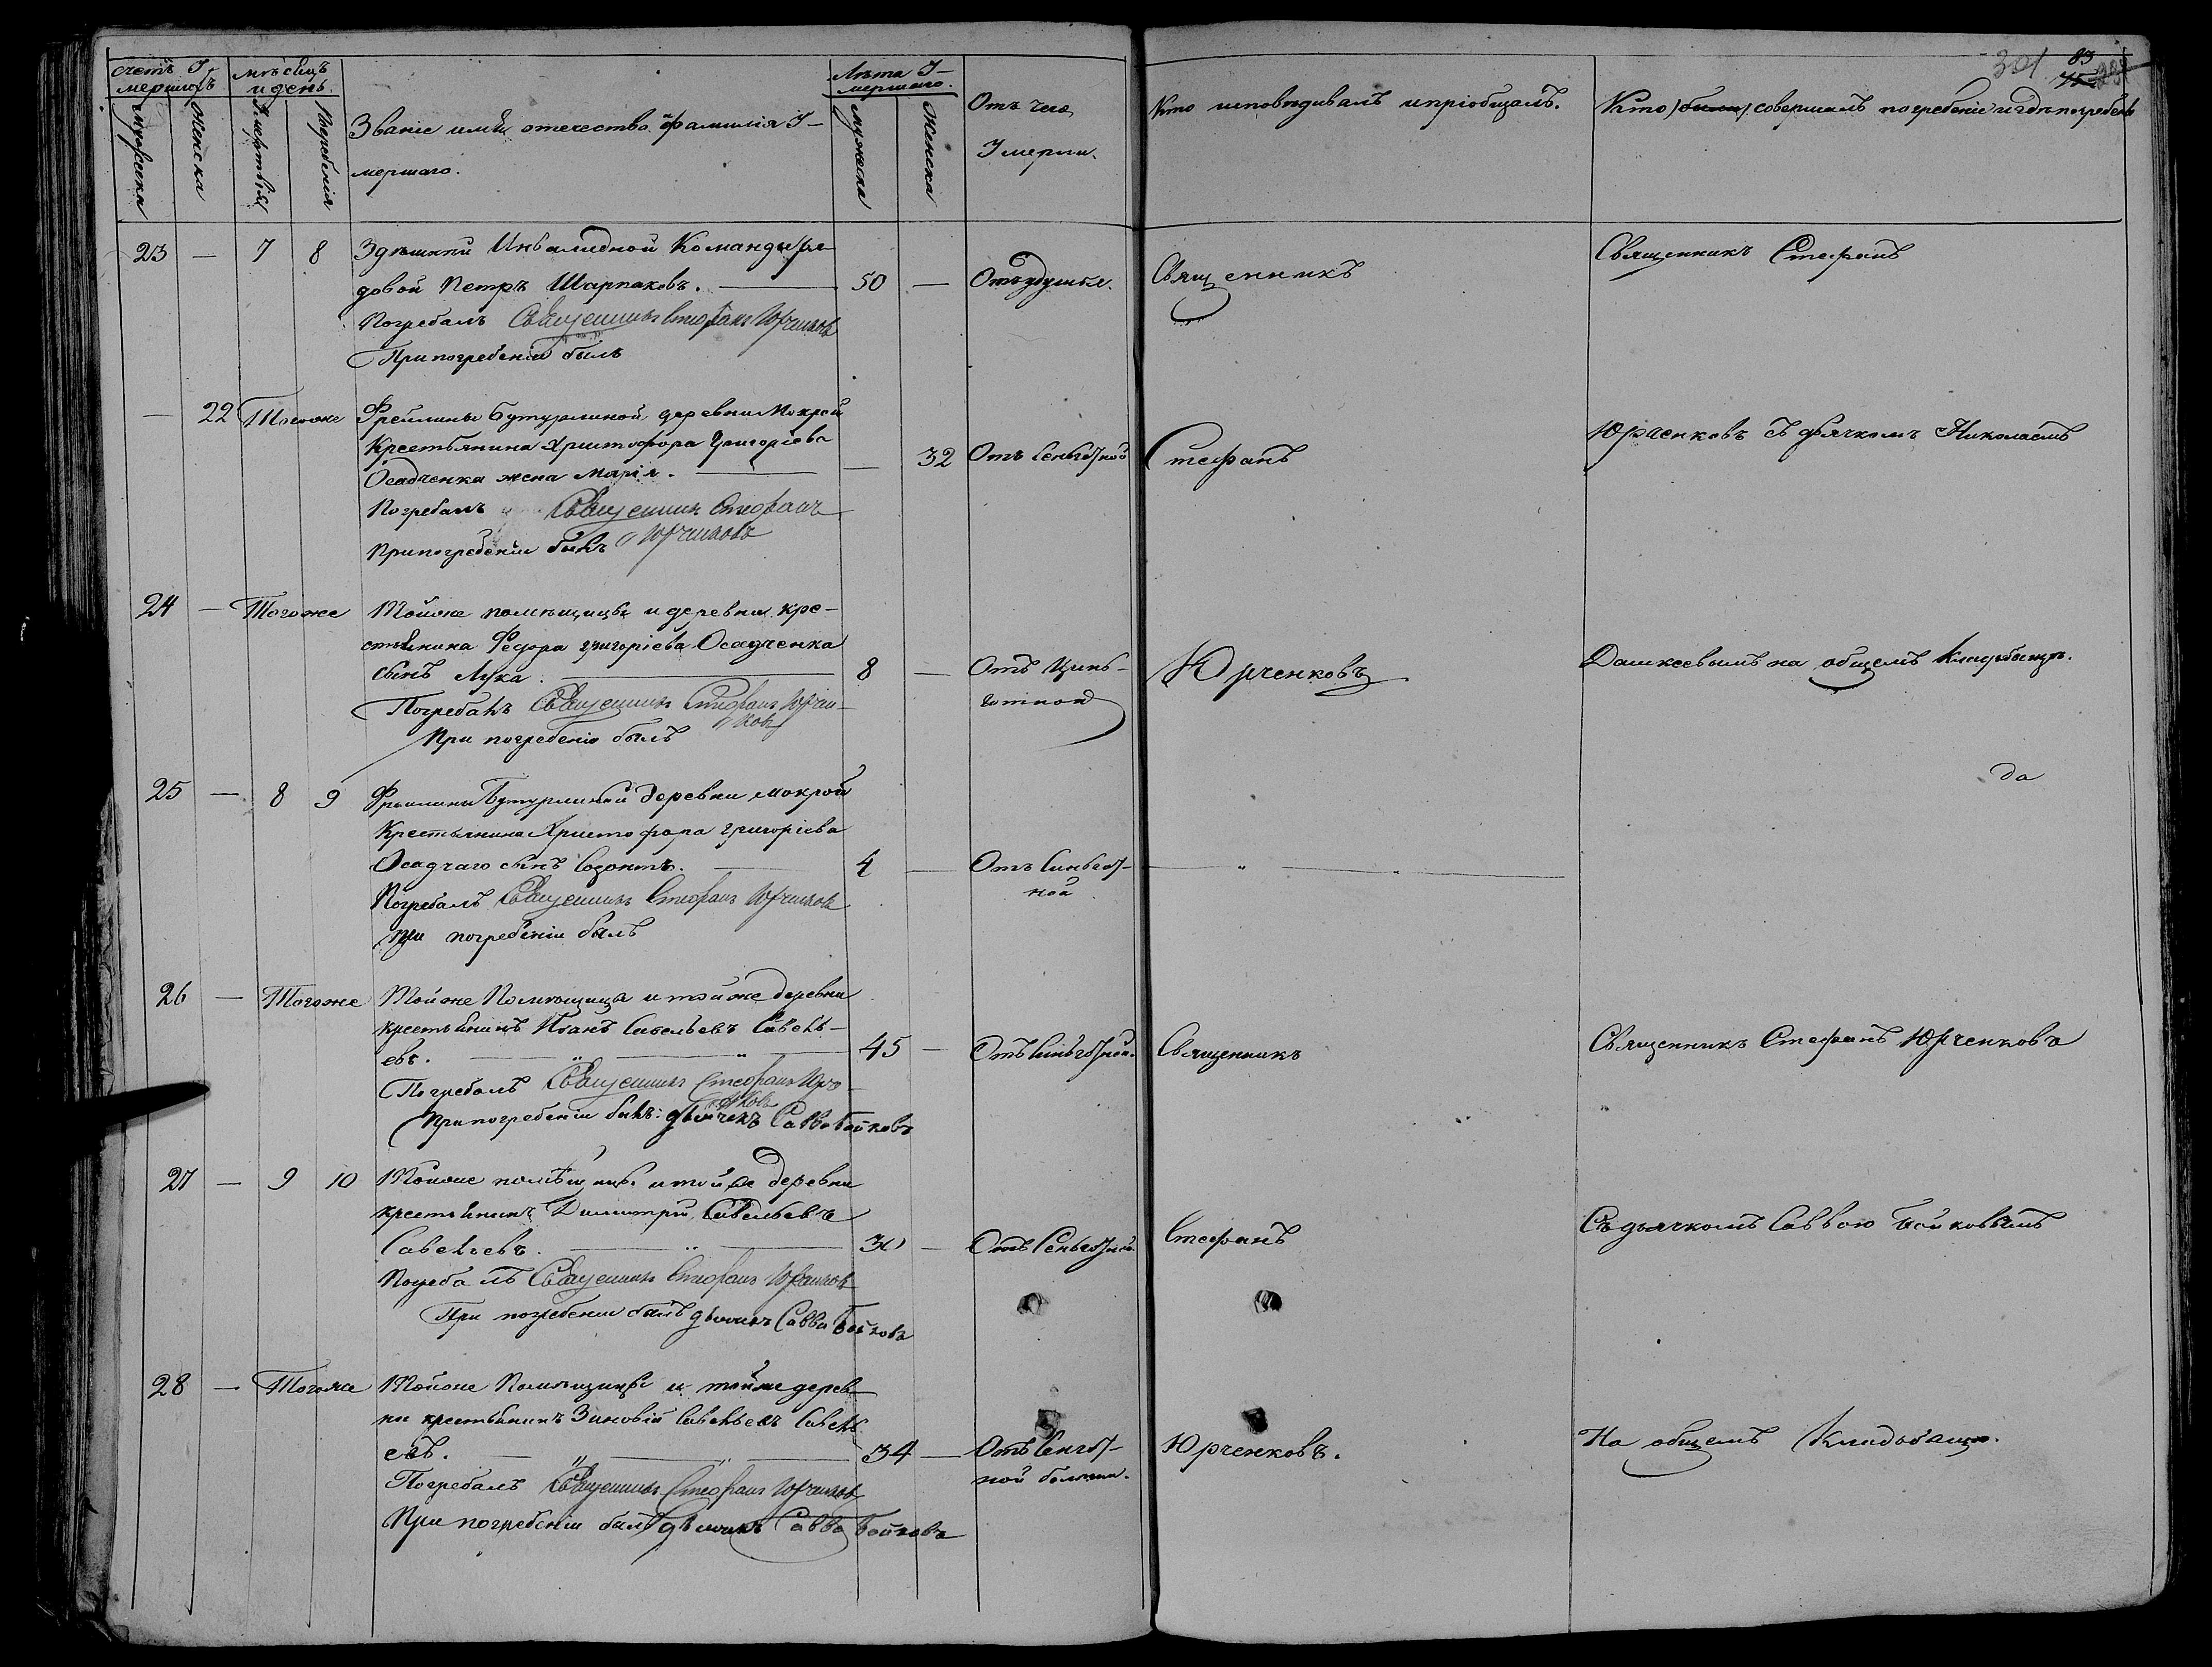 301 83
75
Счетъ У-
мершихъ
мѣсяцъ
и день
Лѣта У-
мершаго.
Мужеска
Женска
Смертныя
Погребенія
Званіе имя отечество фамилія У-
мершаго.
Мужеска
Женска
Отъ чего
Умерли.
Кто исповѣдивалъ и пріобщалъ.
Кто совершалъ погребеніе и гдѣ погребены
23 — 7 8 Здѣшней Инвалидной Команды ря-
довой Петръ Шарпаковъ. — 50 — Отъ удушья. Священникъ
Священникъ Стефанъ
Погребалъ Священникъ Стефанъ Юрченковъ
При погребеніи былъ
— 22 Тогоже Фрейлины Бутурлиной деревни Мокрой
Крестьянина Христофора Григоріева
Осадченка жена Марія. — — 32 Отъ Сеньготной Стефанъ
Юрченковъ съ дьячкомъ Николаемъ
Погребалъ Священникъ Стефанъ
При погребеніи былъ Юрченковъ
24 — Тогоже Тойже помѣщицы и деревни кре-
стьянина Федора Григоріева Осадченка
сынъ Лука. — 8 — Отъ Цинь-
готной
Юрченковъ
Дашкеевымъ на общемъ кладбищѣ.
Погребалъ Священникъ Стефанъ Юрчен-
ковъ
При погребеніи былъ
да
25 — 8 9 Фрейлины Бутурлиной деревни Мокрой
Крестьянина Христофора Григоріева
Осадчаго сынъ Созонтъ. — 4 — Отъ Синьгот-
ной
Погребалъ Священникъ Стефанъ Юрченковъ
При погребеніи былъ
26 — Тогоже Тойже Помѣщицы и тойже деревни
крестьянинъ Иванъ Савельевъ Савель-
евъ. — 45 — Отъ Синьготной. Священникъ
Священникъ Стефанъ Юрченковъ
Погребалъ Священникъ Стефанъ Юрче-
нковъ
При погребеніи былъ: дьячекъ Савва Бойковъ
27 — 9 10 Тойже помѣщицы и тойже деревни
крестьянинъ Димитрій Савельевъ
Савельевъ. — 30 — Отъ Сеньготной. Стефанъ
Съ дьячкомъ Саввою Бойковымъ
Погребалъ Священникъ Стефанъ Юрченковъ
При погребеніи былъ дьячекъ Савва Бойковъ
28 — Тогоже Тойже Помѣщицы и тойже дерев-
ни крестьянинъ Зиновій Савельевъ Савель
евъ. — 34 — Отъ Сенгот-
ной болезни.
Юрченковъ.
На общемъ Кладбищѣ.
Погребалъ Священникъ Стефанъ Юрченковъ
При погребеніи былъ дьячекъ Савва Бойковъ